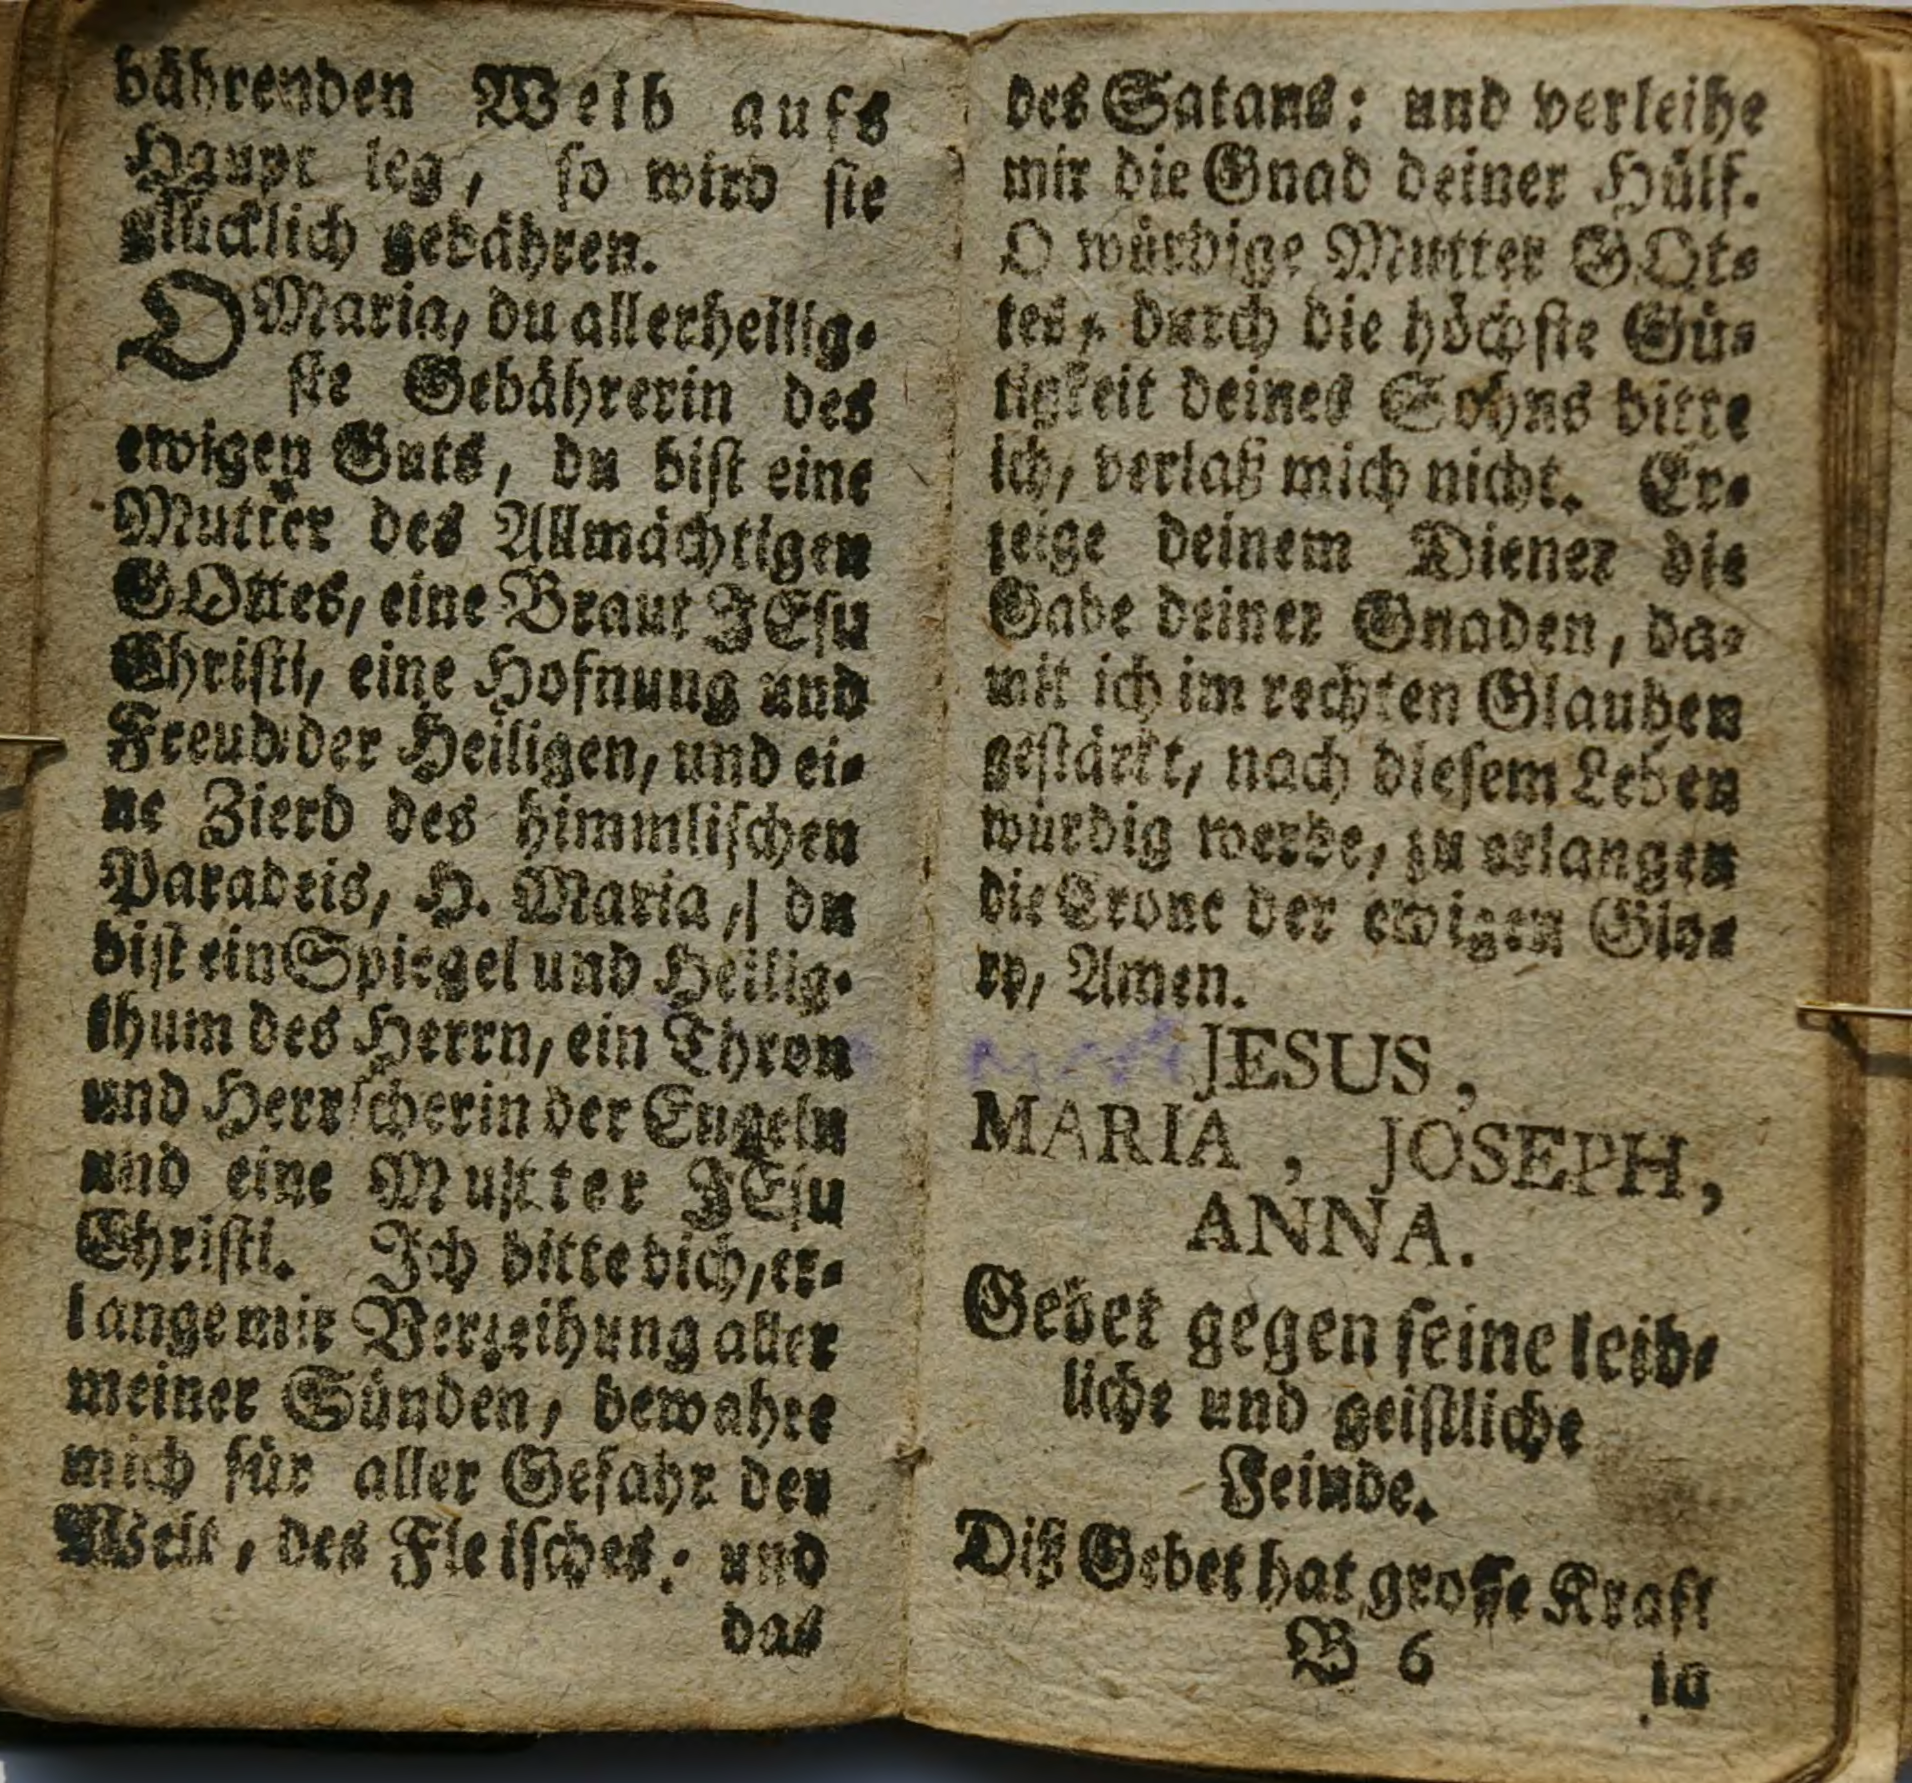 bährenden Weib aufs
Haupt leg, so wird sie
glücklich gebähren.
O Maria, du allerheilig-
ste Gebährerin des
ewigen Guts, du bist eine
Mutter des Allmächtigen
GOttes, eine Braut JEsu
Christi, eine Hofnung und
Freud der Heiligen, und ei-
ne Zierd des himmlischen
Paradeis, H. Maria, du
bist ein Spiegel und Heilig-
thum des Herrn, ein Thron
und Herrscherin der Engeln
und eine Mutter JEsu
Christi. Ich bitte dich, er-
lange mir Verzeihung aller
meiner Sünden, bewahre
mich für aller Gefahr der
Welt, des Fleisches: und
das
des Satans: und verleihe
mir die Gnad deiner Hülf.
O würdige Mutter GOt-
tes, durch die höchste Gü-
tigkeit deines Sohns bitte
ich, verlaß mich nicht. Er-
zeige deinem Diener die
Gabe deiner Gnaden, da-
mit ich im rechten Glauben
gestärkt, nach diesem Leben
würdig werde, zu erlangen
die Crone der ewigen Glo-
ry, Amen.
JESUS,
MARIA, JOSEPH,
ANNA.
Gebet gegen seine leib-
liche und geistliche
Feinde.
Diß Gebet hat grosse Kraft
B 6
in